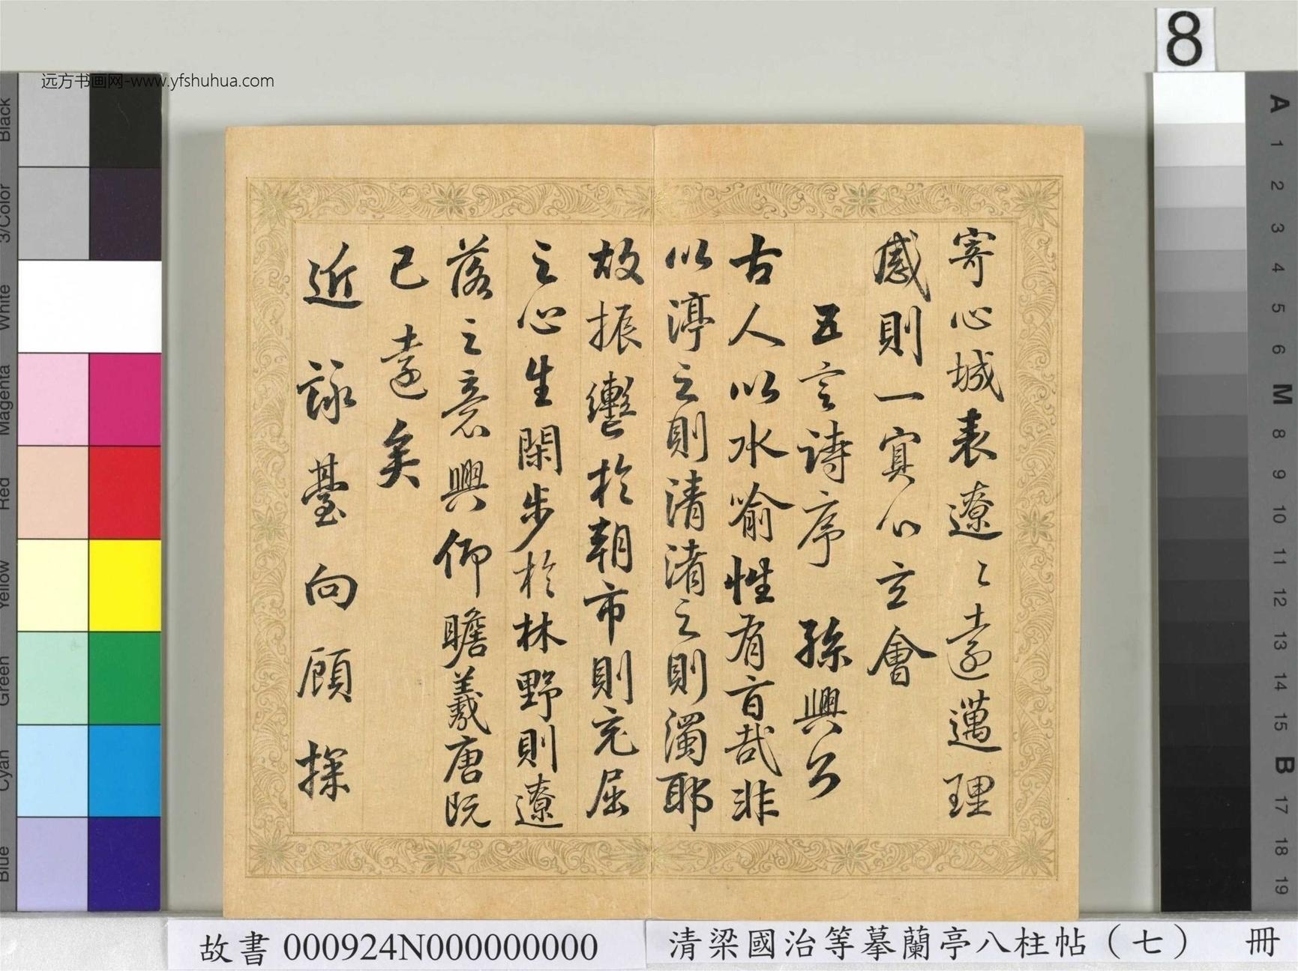 远方书画网-www.yfshuhua.com
8
寄心城表遼〻遠邁理
感則一冥心玄會
五言詩序 孫興公
古人以水喻性有旨哉非
以渟之則清淆之則濁耶
故振轡於朝市則充屈
之心生閑步於林野則遼
落之意興仰瞻羲唐既
已遠矣
近詠臺向顧探
Black
3/Color
White
Magenta
Red
Yellow
Green
Cyan
Blue
A
1
2
3
4
5
6
M
8
9
10
11
12
13
14
15
B
17
18
19
故書 000924N000000000
清梁國治等摹蘭亭八柱帖（七） 冊